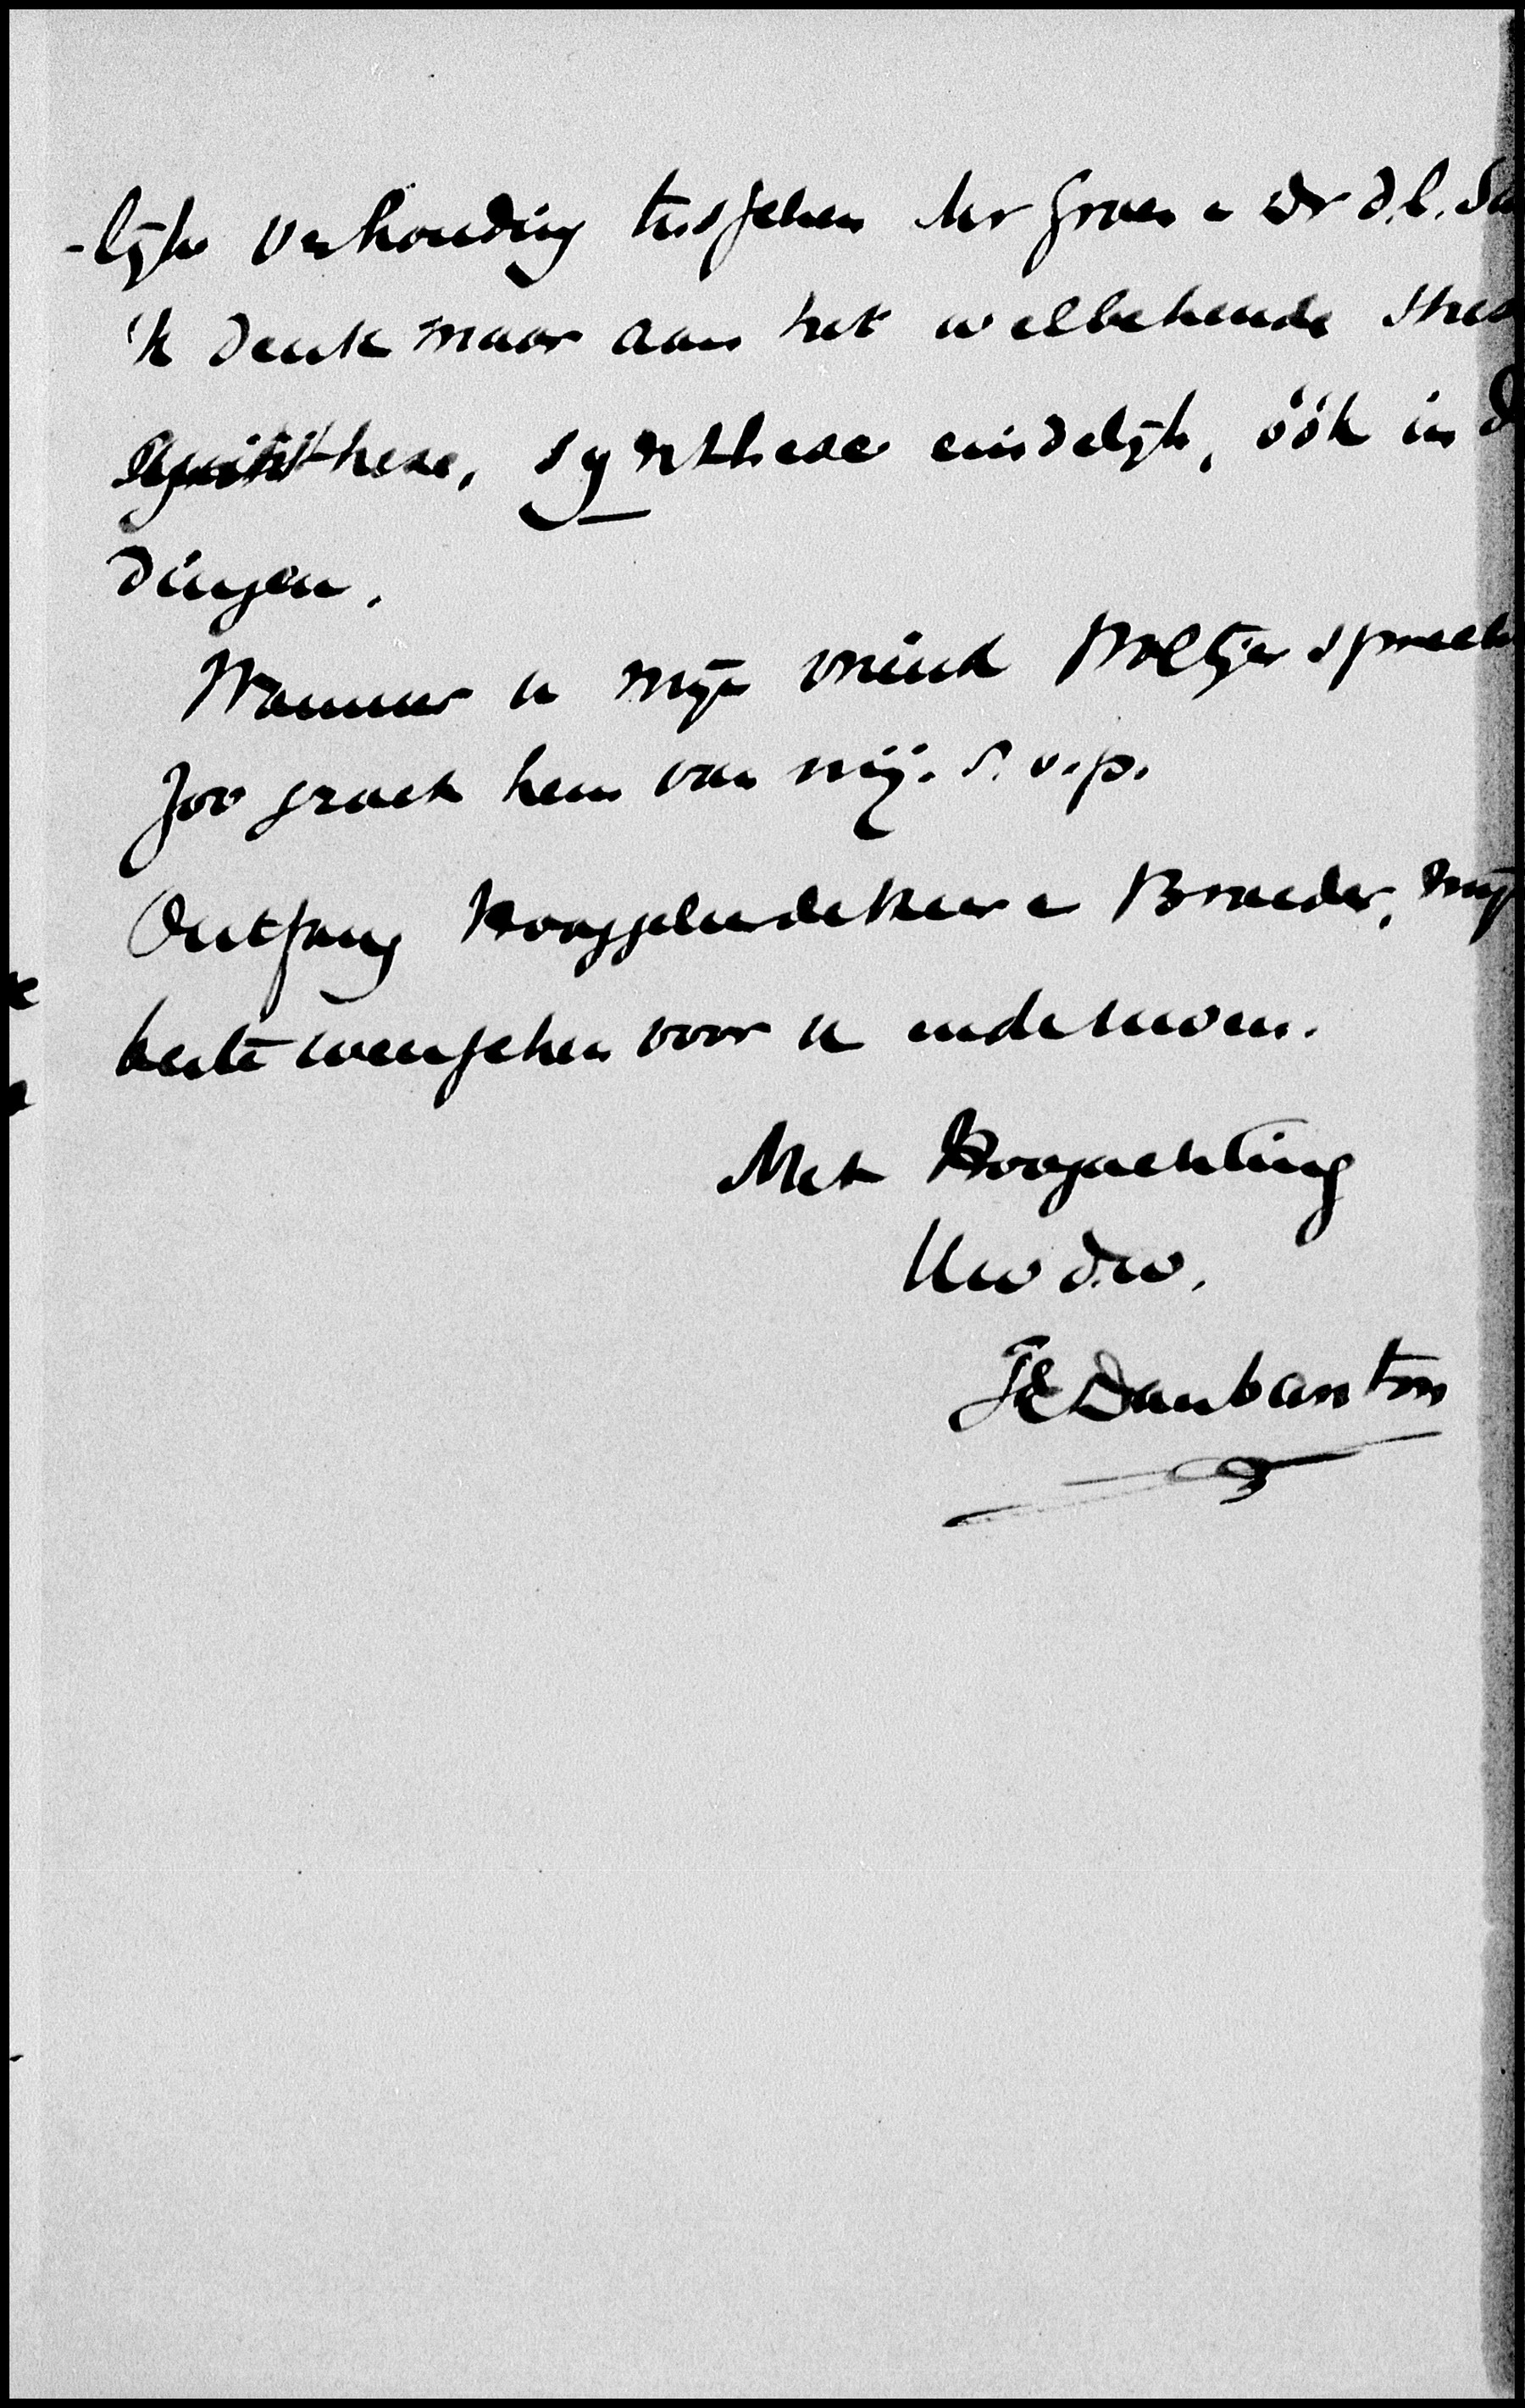 -lijke verhouding tusschen Mr Groen e Dr d.l. Sa
'k denk maar aan het welbekende thes
antithese, synthese eindelijk, óók in d
dingen.
Wanneer u mijn vriend Woltjer spreek
zoo groet hem van mij. s.v.p.
Ontfang Hooggeleerde Heer e Broeder, mijn
beste wenschen voor u en de uwen.
Met Hoogachting
Uw d.w.
FE Daubanton